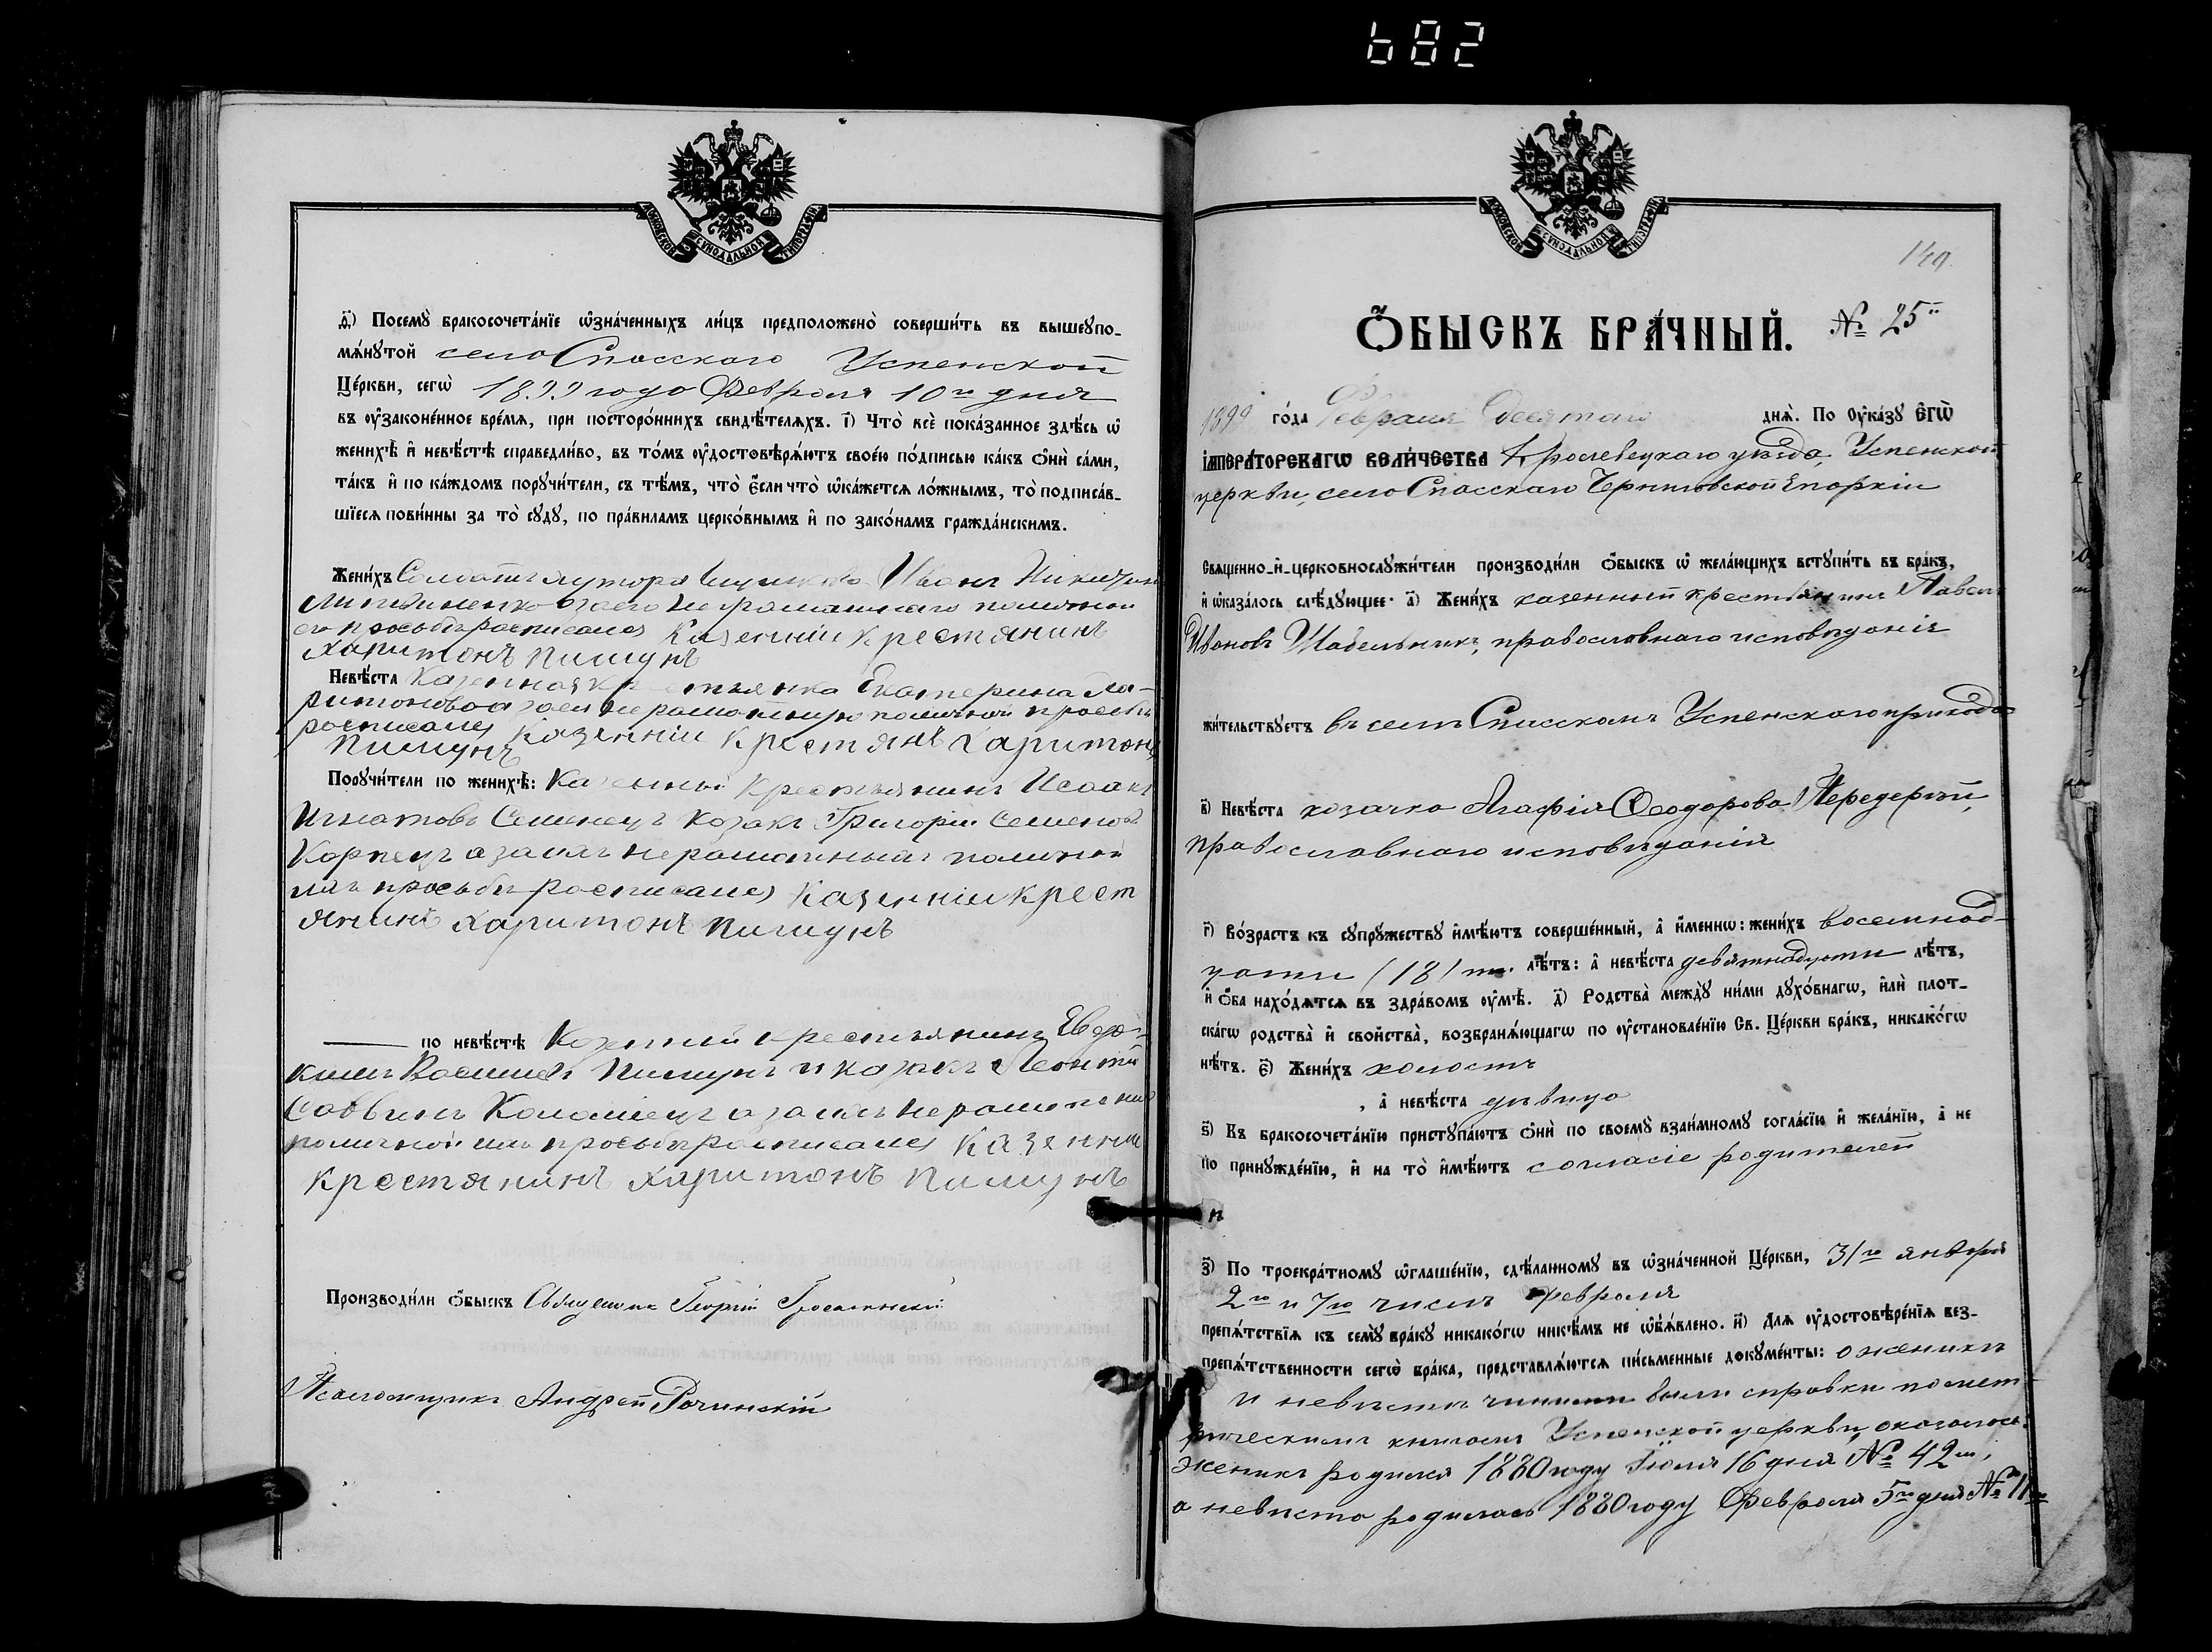 682
МОСКОВСКОЙ СѴНОДАЛЬНОЙ ТИПОГРАФІИ
д҃і) Посемꙋ̀ бракосочета́нїе ѡ҆зна́ченныхъ ли́цъ предположено̀ соверши́ть въ вышеꙋпо-
мѧ́нꙋтой село Спасскаго Успенской
Це́ркви, сегѡ̀ 1899 года Февраля 10го дня
въ ᲂу҆законе́нное вре́мѧ, при посторо́ннихъ свидѣ́телѧхъ. і҃) Что̀ всѐ пока́занное здѣ́сь ѡ҆
женихѣ̀ и҆ невѣ́стѣ справедли́во, въ то́мъ ᲂу҆достовѣрѧ́ютъ свое́ю по́дписью ка́къ ѻ҆нѝ са́ми,
та́къ и҆ по ка́ждомъ порꙋчи́тели, съ тѣ́мъ, что̀ є҆́сли что̀ ѡ҆ка́жетсѧ ло́жнымъ, то̀ подписа́в-
шїесѧ пови́нны за то̀ сꙋдꙋ̀, по пра́виламъ церко́внымъ и҆ по зако́намъ гражда́нскимъ.
Жени́хъ Иванъ Никитинъ
а за его неграмотнаго поличной
его просьбѣ росписался Казенніи крестянинъ
Харитонъ Пишунъ
Невѣ́ста Казенная крестьянка Екатерина Ха-
ритонова а за ея неграмотную поличной просьбѣ
росписался Казенніи Крестянъ Харитонъ
Пишунъ
Порꙋчи́тели по женихѣ̀: Казенный Крестьянинъ Исаакъ
Игнатовъ Семенецъ Козакъ Григорій Семеновъ
Карпецъ а за ихъ неграмотныхъ поличной
ихъ просьбѣ росписался Казенніи крест
янинъ Харитонъ Пишунъ
по невѣ́стѣ Козенный крестьянинъ Евдо-
кимъ Васильевъ Пишунъ и казакъ Леонтій
Саввинъ Коломіецъ а за ихъ неграмотныхъ
поличной ихъ просьбѣ росписался Казенніи
Крестянинъ Харитонъ Пишунъ
Производи́ли ѻ҆́быскъ Священникъ Георгій
Псаломщикъ Андрей Рачинскій
МОСКОВСКОЙ СѴНОДАЛЬНОЙ ТИПОГРАФІИ
Ѻ҆́БЫСКЪ БРА́ЧНЫЙ. № 25й
1899 го́да Февраля десятаго днѧ̀. По ᲂу҆ка́зꙋ Є҆ГѠ̀
І҆МПЕРА́ТОРСКАГѠ ВЕЛИ́ЧЕСТВА Кролевецкаго уѣзда, Успенской
церкви, село Спасскаго Черниговской Епархіи
Сщ҃е́нно-и҆-церковнослꙋжи́тели производи́ли ѻ҆́быскъ ѡ҆ жела́ющихъ встꙋпи́ть въ бра́къ,
и҆ ѡ҆каза́лось слѣ́дꙋющее: а҃) Жени́хъ казенный крестьянинъ Павелъ
Ивановъ Шабельникъ, православнаго исповѣданія
жи́тельствꙋетъ въ селѣ Спасскомъ Успенскаго прихода
в҃) Невѣ́ста козачка Агафія Феодорова Передерій,
православнаго исповѣданія
г҃) Во́зрастъ къ сꙋпрꙋ́жествꙋ и҆мѣ́ютъ соверше́нный, а҆ и҆́менно: жени́хъ восемнад-
цати (18) ти. лѣ́тъ: а҆ невѣ́ста девятнадцати лѣ́тъ,
и҆ ѻ҆́ба нахо́дѧтсѧ въ здра́вомъ ᲂу҆мѣ̀. д҃) Родства̀ междꙋ̀ ни́ми дꙋхо́внагѡ, и҆лѝ плот-
ска́гѡ родства̀ и҆ сво́йства, возбранѧ́ющагѡ по ᲂу҆становле́нїю Св. Це́ркви бра́къ, никако́гѡ
нѣ́тъ. є҃) Жени́хъ холостъ
, а҆ невѣ́ста дѣвица
ѕ҃) Къ бракосочета́нїю пристꙋпа́ютъ ѻ҆нѝ по своемꙋ̀ взаи́мномꙋ согла́сїю и҆ жела́нїю, а҆ не
по принꙋжде́нїю, и҆ на то̀ и҆мѣ́ютъ согласіе родителей
з҃) По троекра́тномꙋ ѡ҆глаше́нїю, сдѣ́ланномꙋ въ ѡ҆зна́ченной Це́ркви, 31го января
2го и 7го чиселъ февраля
препѧ́тствїѧ къ семꙋ̀ бра́кꙋ никако́гѡ никѣ́мъ не ѡ҆б̾ѧ́влено. и҃) Длѧ ᲂу҆достовѣре́нїѧ без-
препѧ́тственности сегѡ̀ бра́ка, представлѧ́ютсѧ пи́сьменные докꙋме́нты: о женихѣ
и невѣстѣ чинимы были справки помет-
рическимъ книгамъ Успенской церкви, оказалось:
женихъ родился 1880 году Іюля 16 дня № 42м,
а невѣста родилась 1880 году Февраля 5го дня № 11м